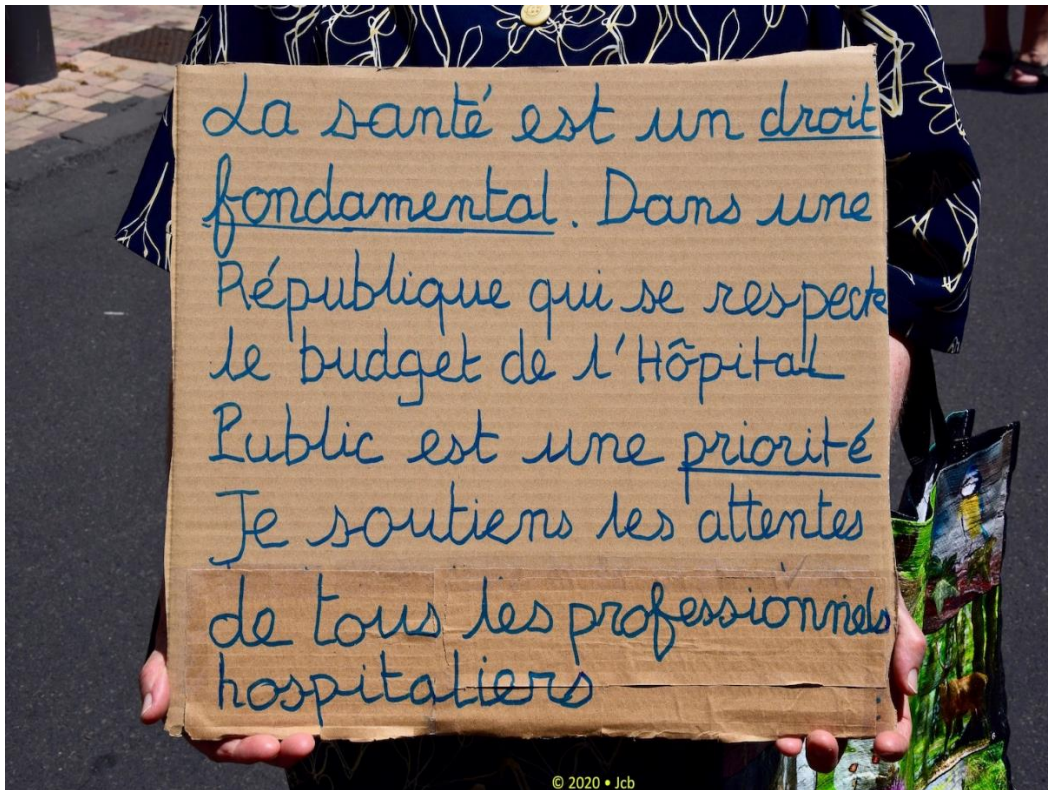 La santé est un droit
fondamental. Dans une
République qui se respecte
le budget de l'Hôpital
Public est une priorité
Je soutiens les attentes
de tous les professionnels
hospitaliers
© 2020 • Jcb